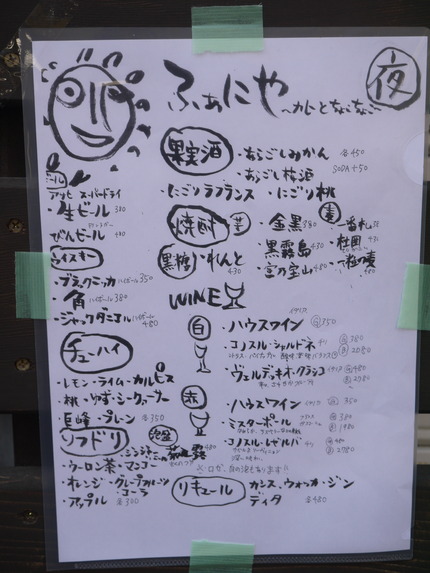 夜
ふぁにや
果実酒
・あらごしみかん 各450
・あらごし梅酒 SODA+50
・にごりラフランス ・にごり桃
ビール
アサヒ スーパードライ
・生ビール 380
びんビール 480
焼酎
芋
・金黒 380
・黒霧島 430
・宝の宝山 480
麦
・一番札
・杜園
480
黒糖
れんと 430
ウイスキー
・ブラックニッカ ハイボール 350
・角 ハイボール 380
・ジャックダニエル ハイボール 480
WINE
白
・ハウスワイン 350
・コノスル・シャルドネ チリ 380
2080
・ヴェルデッキオ・クラシコ 480
赤
・ハウスワイン 350
・ミスターポール 380
1980
・コノスル・レゼルバ チリ 480
2980
※ロゼ、泡の泡もあります!!
チューハイ
・レモン・ライム・カルピス
・桃・ゆず・シークヮーサー
・巨峰・プレーン 各350
ソフドリ
・ジンジャー
・ウーロン茶・マンゴー
・オレンジ・グレープフルーツ
・コーラ
・アップル 各300
リキュール
カシス、ウォッカ・ジン
ディタ 各480